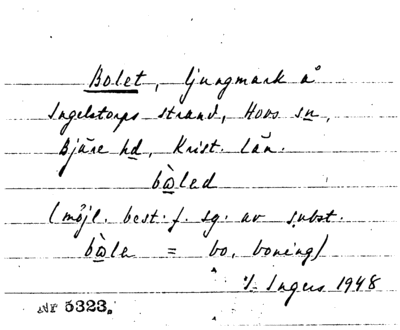 Bolet, ljungmark å
Ingelstorps strand, Hovs sn,
Bjäre hd, Krist. län.
bὼled
(möjl. best. f. sg. av subst.
bὼle = bo, boning)
I. Ingers 1948
Nr 5323.